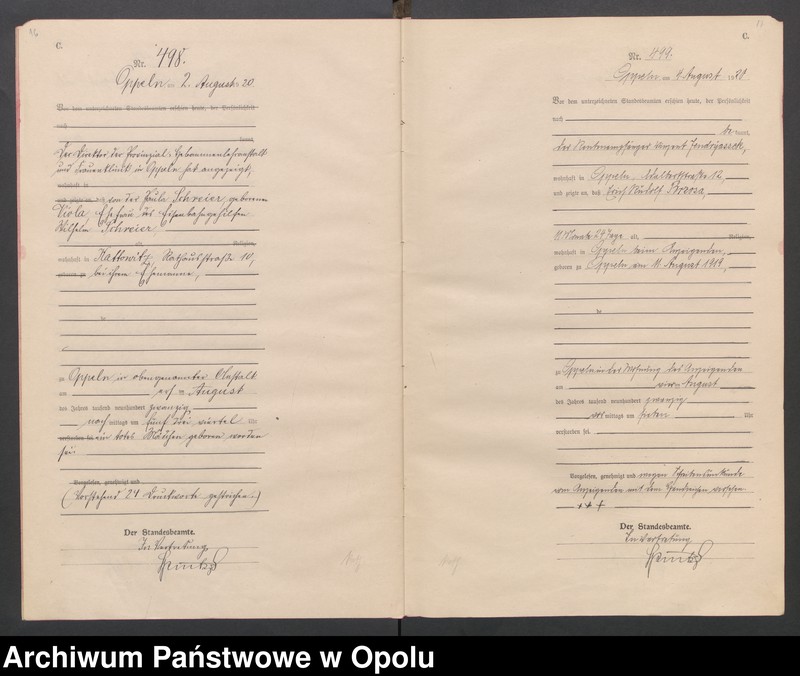 C.
Nr. 498.
Oppeln am 2. August 1920.
Vor dem unterzeichneten Standesbeamten erschien heute, der Persönlichkeit
nach
kannt,
Der Direktor der Provinzial-Hebammenlehranstalt
und Frauenklinik in Oppeln hat angezeigt,
wohnhaft in
und zeigte an, daß von der Paula Schreier, geborenen
Viola, Ehefrau des Eisenbahngehilfen
Wilhelm Schreier,
alt, Religion,
wohnhaft in Kattowitz, Rathausstraße 10,
geboren zu bei ihrem Ehemanne,
de
zu Oppeln in obengenannter Anstalt
am ersten August
des Jahres tausend neunhundert zwanzig
nachmittags um fünf drei viertel Uhr
verstorben sei ein totes Mädchen geboren worden
sei.
Vorgelesen, genehmigt und
(Vorstehend 21 Druckworte gestrichen.)
Der Standesbeamte.
In Vertretung
C.
Nr. 499.
Oppeln am 4. August 1920
Vor dem unterzeichneten Standesbeamten erschien heute, der Persönlichkeit
nach
be kannt,
der Rentenempfänger Vinzent Jendryassek,
wohnhaft in Oppeln, Malterstraße 12,
und zeigte an, daß Rudolf
11 Monate 24 Tage alt, Religion,
wohnhaft in Oppeln beim Anzeigenden,
geboren zu Oppeln am 11. August 1919,
de
zu Oppeln in der Wohnung des Anzeigenden
am vierten August
des Jahres tausend neunhundert zwanzig
vormittags um sieben Uhr
verstorben sei.
Vorgelesen, genehmigt und wegen Schreibensunkunde
vom Anzeigenden mit dem Handzeichen versehen
+++
Der Standesbeamte.
In Vertretung
Archiwum Państwowe w Opolu